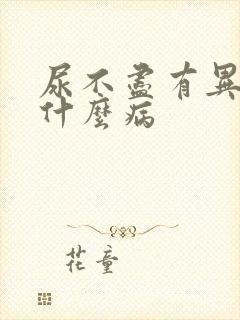 尿不盡有異
什麼病
花童